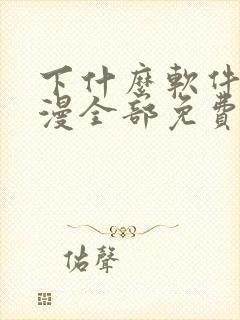 下什麼軟件
漫全部免費
佑聲